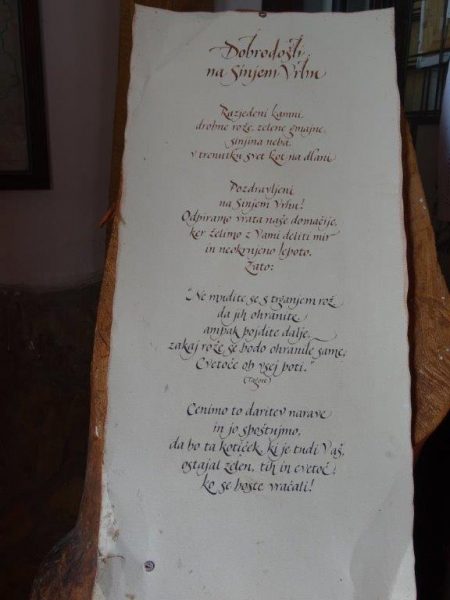 Dobrodošli
na Sinjem Vrhu
Razjedeni kamni,
drobne rože, zelene gmajne,
sinjina neba,
v trenutku svet kot na dlani
Pozdravljeni
na Sinjem Vrhu!
Odpiramo vrata naše domačije,
ker želimo z Vami deliti mir
in neokrnjeno lepoto.
Zato:
"Ne mudite se s trganjem rož
da jih ohranite
ampak pojdite dalje,
zakaj rože se bodo ohranile same,
Cvetoče ob vsej poti."
(Tagore)
Cenimo to daritev narave
in jo spoštujmo,
da bo ta kotiček, ki je tudi Vaš,
ostajal zelen, tih in cvetoč;
ko se boste vračali!